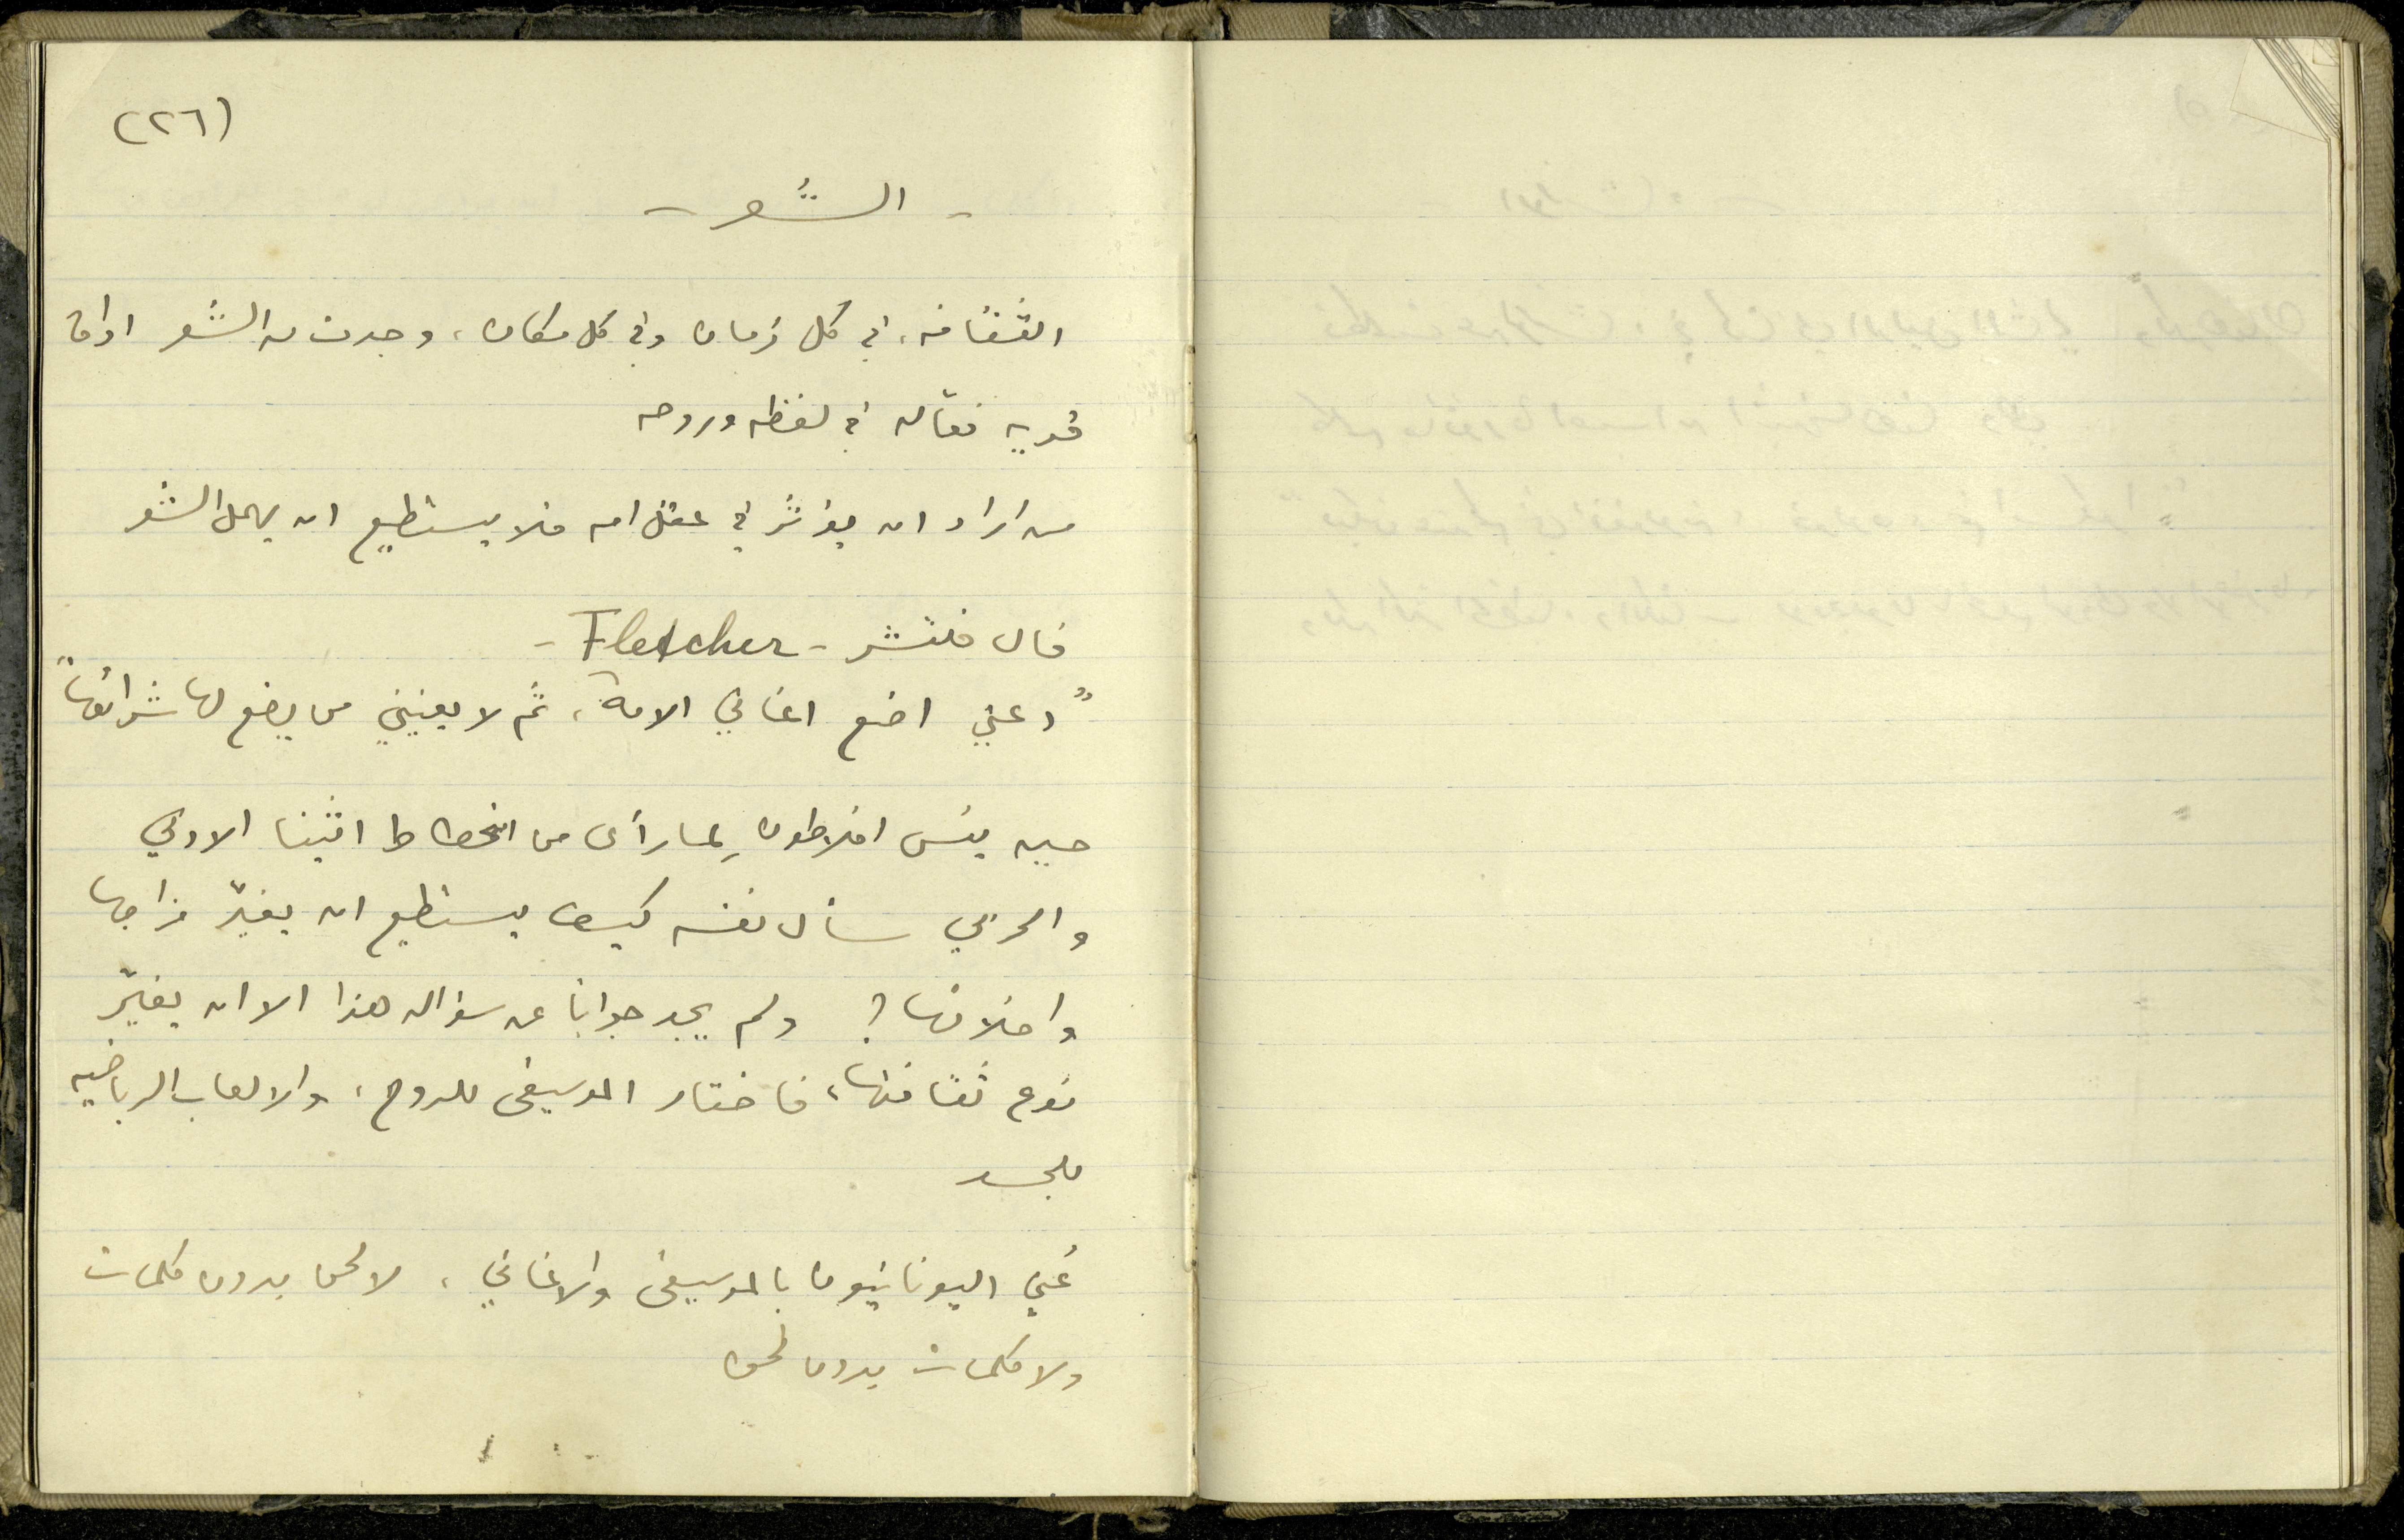 (٢٦)
- الشعر -
الثقافه، في كل زمان وفي كل مكان، وجدت من الشعر اداة
قويه فعّاله في لفظه وروحه
من اراد ان يؤثر في عقل امه فلا يستطيع ان يهمل الشعر
قال فلتشر - Fletcher -
"دعني اضع اغاني الامة، ثم لا يعنيني من يضع لها شرائعها"
حين يئس افلاطون لِما رأى من انحطاط اثينا الادبي
والحربي سأل نفسه كيف يستطيع ان يغيّر مزاجها
واخلاقها؟ ولم يجد جواباً عن سؤاله هذا الا ان يغيّر
نوع ثقافتها، فاختار الموسيقى للروح، والالعاب الرياضيه
للجسد
عُني اليونانيون بالموسيقى والاغاني، لا لحن بدون كلمات
ولا كلمات بدون لحن